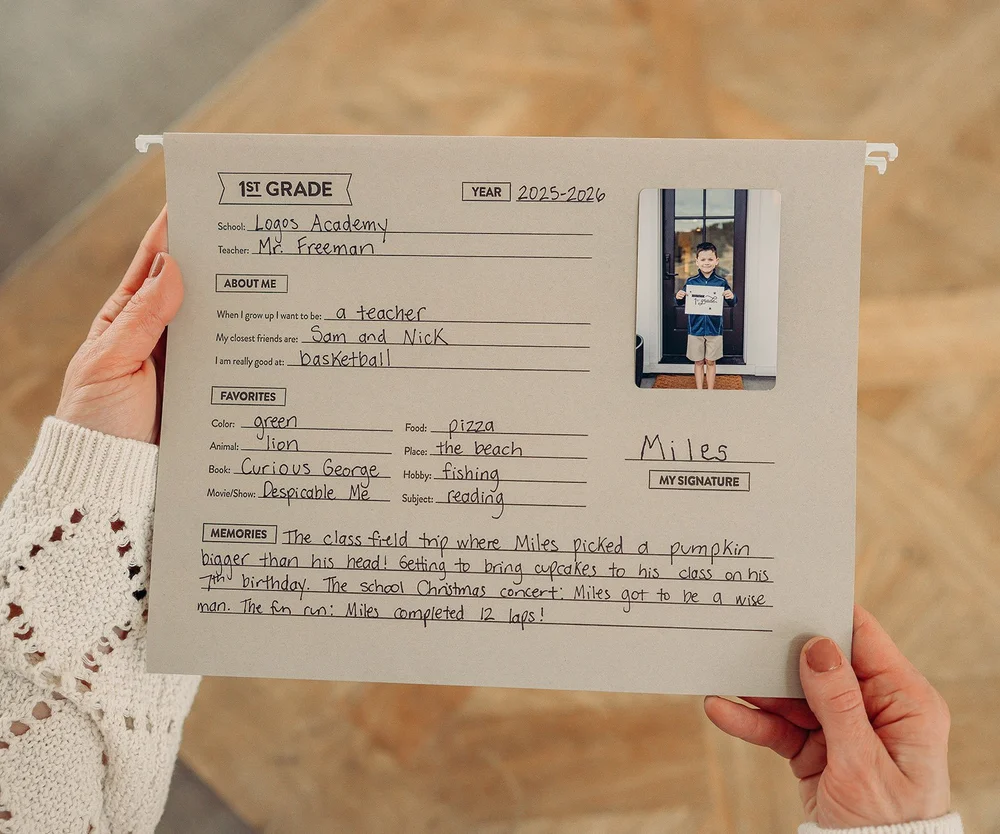 1ST GRADE YEAR 2025-2026
School: Logos Academy
Teacher: Mr. Freeman
ABOUT ME
When I grow up I want to be: a teacher
My closest friends are: Sam and Nick
I am really good at: basketball
FAVORITES
Color: green Food: pizza
Animal: lion Place: the beach
Book: Curious George Hobby: fishing
Movie/Show: Despicable Me Subject: reading
1st grade
Miles
MY SIGNATURE
MEMORIES The class field trip where Miles picked a pumpkin
bigger than his head! Getting to bring cupcakes to his class on his
7th birthday. The school Christmas concert: Miles got to be a wise
man. The fun run: Miles completed 12 laps!